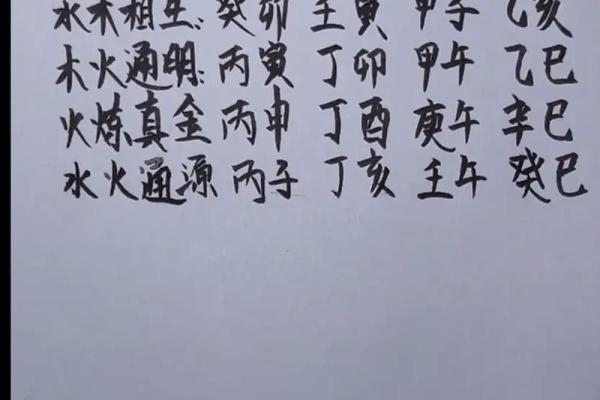 水木相生:癸卯 壬寅 甲子 乙亥
木火通明:丙寅 丁卯 甲午 乙巳
火炼真金 丙申 丁酉 庚午 辛巳
水火通源 丙子 丁亥 壬午 癸巳